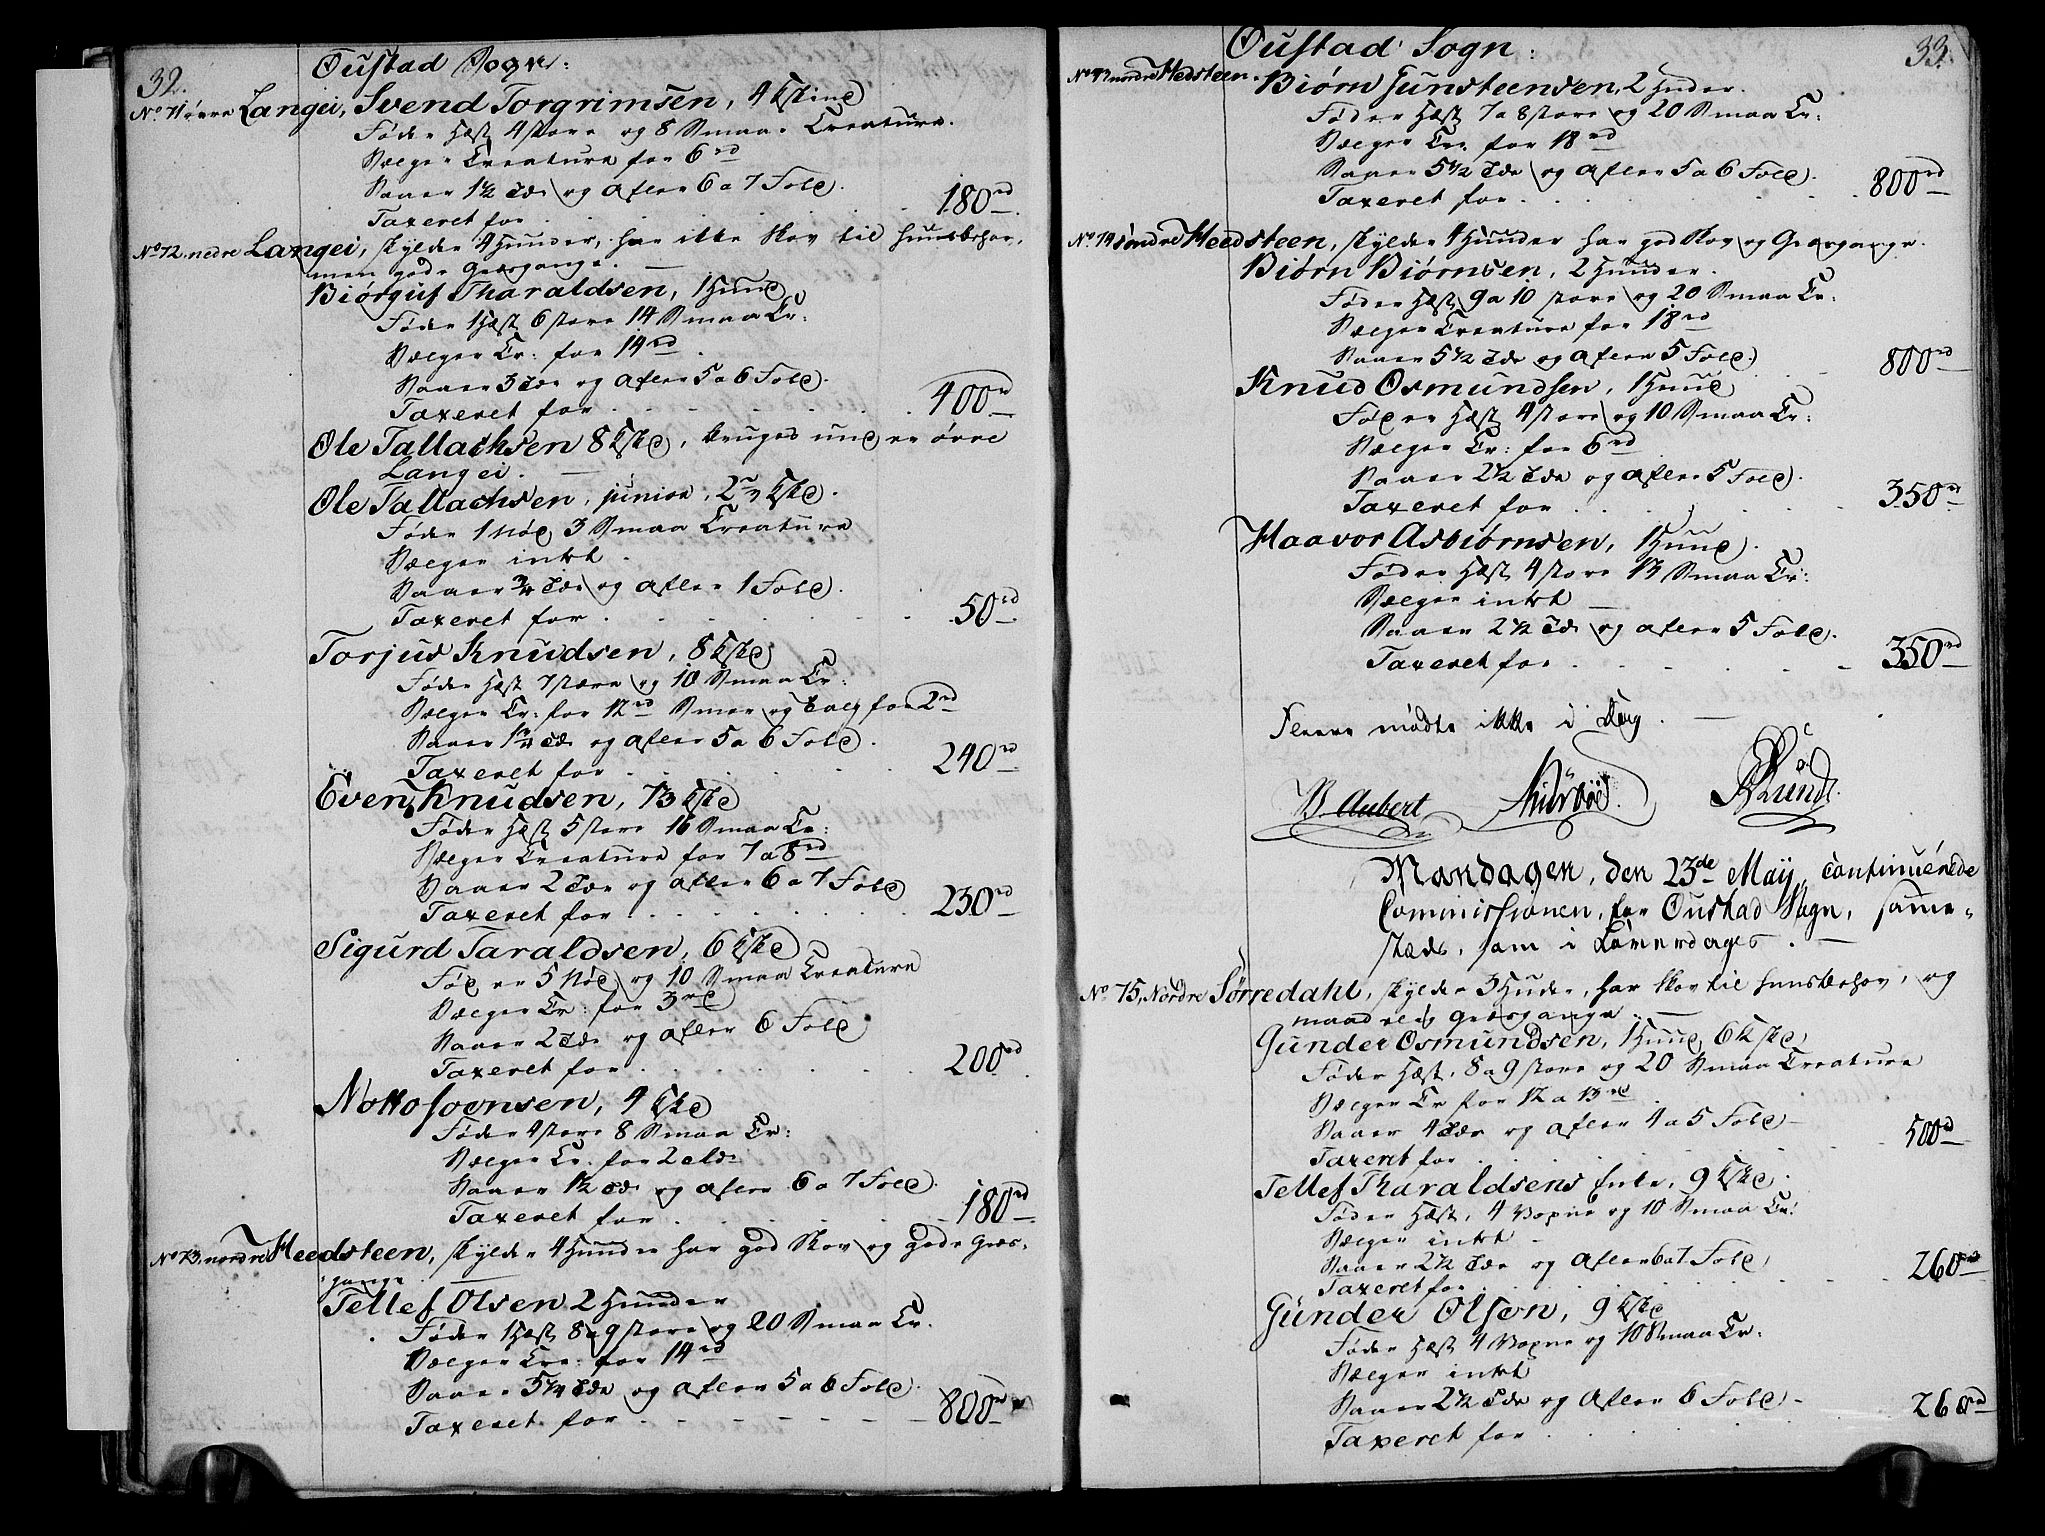 32. Oustad Sogn:
No 71 øvre Langei, Svend Torgrimsen, 4 Kskind
Føder Hæst 4 store og 8 Smaae Creature.
Sælger Creature for 6 rd
Saaer 1 1/2 Tde og afler 6 a 7 Fold.
Taxeret for . . . 180 rd
No 72. nedre Langei, skylder 4 Huuder, har ikke Skov til Huusbehov,
men gode Græsgange. —
Biørguf Tharaldsen, 1 Huud
Føder 1 Hæst 6 store 14 Smaa Cr:
Sælger Cr: for 14 rd.
Saaer 3 Tde og afler 5 a 6 Fold.
Taxeret for . . . 400 rd
Ole Tallachsen 8 Kskd, bruges under øvre
Langei. —
Ole Tallachsen, junior, 2 Kskd.
Føder 1 Nød 3 Smaa Creature
Sælger intet.
Saaer 3/4 Tde og afler 1 Fold.
Taxeret for . . . 50 rd
Torjus Knudsen, 8 Kskd
Føder Hæst 7 store og 10 Smaa Cr:
Sælger Cr: for 12 rd Smør og Talg for 2 rd
Saaer 1 3/4 Tde og afler 5 a 6 Fold.
Taxeret for . . . 240 rd
Even Knudsen, 13 Kskd
Føder Hæst 5 store 16 Smaa Cr:
Sælger Creature for 7 a 8 rd
Saaer 2 Tde og afler 6 a 7 Fold
Taxeret for . . . 230 rd
Sigurd Taraldsen, 6 Kskd
Føder 5 Nød og 10 Smaa Creature
Sælger Cr: for 3 rd
Saaer 2 Tde og afler 6 Fold
Taxeret for . . . 200 rd
Notto Joensen, 4 Kskd
Føder 4 store 8 Smaa Cr:
Sælger Cr. for 2
Saaer 1 1/2 Tde og afler 6 a 7 Fold.
Taxeret for . . . 180 rd
No 73. nordre Heedsteen, skylder 4 Huuder har god Skov og gode Græs-
gange. —
Tellef Olsen 2 Huuder
Føder 1 Hæst 8 a 9 store og 20 Smaa Cr.
Sælger Cre: for 14 rd
Saaer 5 1/4 Tde og afler 5 a 6 Fold.
Taxeret for . . . 800 rd
Oustad Sogn: 33.
No 73 nordre Hedsteen. Biørn Gunsteensen, 2 Huder.
Føder Hæst 7 a 8 store og 20 Smaa Cr:
Sælger Cr: for 18 rd
Saaer 5 1/2 Tde og afler 5 a 6 Fold.
Taxeret for . . . 800 rd
No 74 søndre Heedsteen, skylder 4 Huuder har god Skov og Græsgange.
Biørn Biørnsen, 2 Huuder.
Føder Hæst 9 a 10 store og 20 Smaa Cr:
Sælger Creature for 18 rd
Saaer 5 1/2 Tde og afler 5 Fold. . 800 rd
Knud Osmundsen, 1 Huud
Føder Hæst 4 store og 10 Smaa Cr:
Sælger Cr: for 6 rd
Saaer 2 1/2 Tde og afler 5 Fold.
Taxeret for . . . 350 rd
Haavor Asbiørnsen, 1 Huud.
Føder Hæst 4 store 13 Smaa Cr:
Sælger intet —
Saaer 2 1/2 Tde og afler 5 Fold.
Taxeret for . . . 350 rd
Fleere mødte ikke i Dag. —
B. Aubert Lund.
Mandagen, den 23de Maij, continuerede
Commissionen, for Oustad Sogn, samme-
stæds, som i Løverdages. —
No 75, Nordre Sørredahl, skylder 3 Huder, har Skov til Huusbehov, og
maadelig Græsgange. —
Gunder Osmundsen, 1 Huud 6 Kskd
Føder Hæst, 8 a 9 store og 20 Smaa Creature
Sælger Cr for 12 a 13 rd
Saaer 4 Tde og afler 4 a 5 Fold —
Taxeret for . . . 500 rd
Tellef Tharaldsens Enke, 9 Kskd.
Føder Hæst, 4 Voxne og 10 Smaa Cr:
Sælger intet —
Saaer 2 1/2 Tde og afler 6 a 7 Fold
Taxeret for . . . 260 rd
Gunder Olsen, 9 Kskd
Føder Hæst 4 Voxne og 10 Smaa Cr:
Sælger intet
Saaer 2 1/2 Tde og afler 6 Fold —
Taxeret for . . . 260 rd